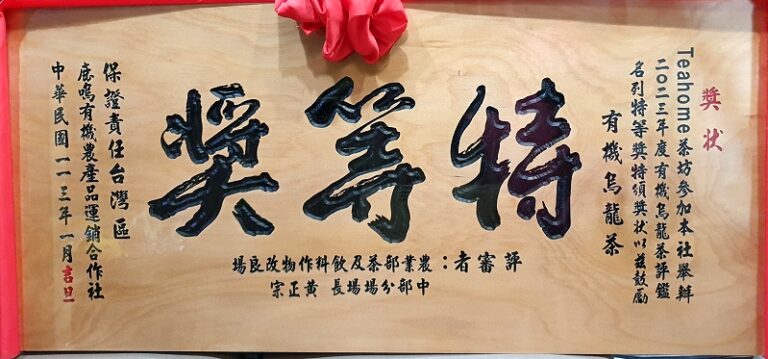 獎狀
Teahome茶坊參加本社舉辦
二〇二三年度有機烏龍茶評鑑
名列特等獎特頒獎狀以茲鼓勵
有機烏龍茶
特等獎
評審者：農業部茶及飲料作物改良場
中部分場場長 黃正宗
保證責任台灣區
鹿鳴有機農產品運銷合作社
中華民國一一三年一月吉旦